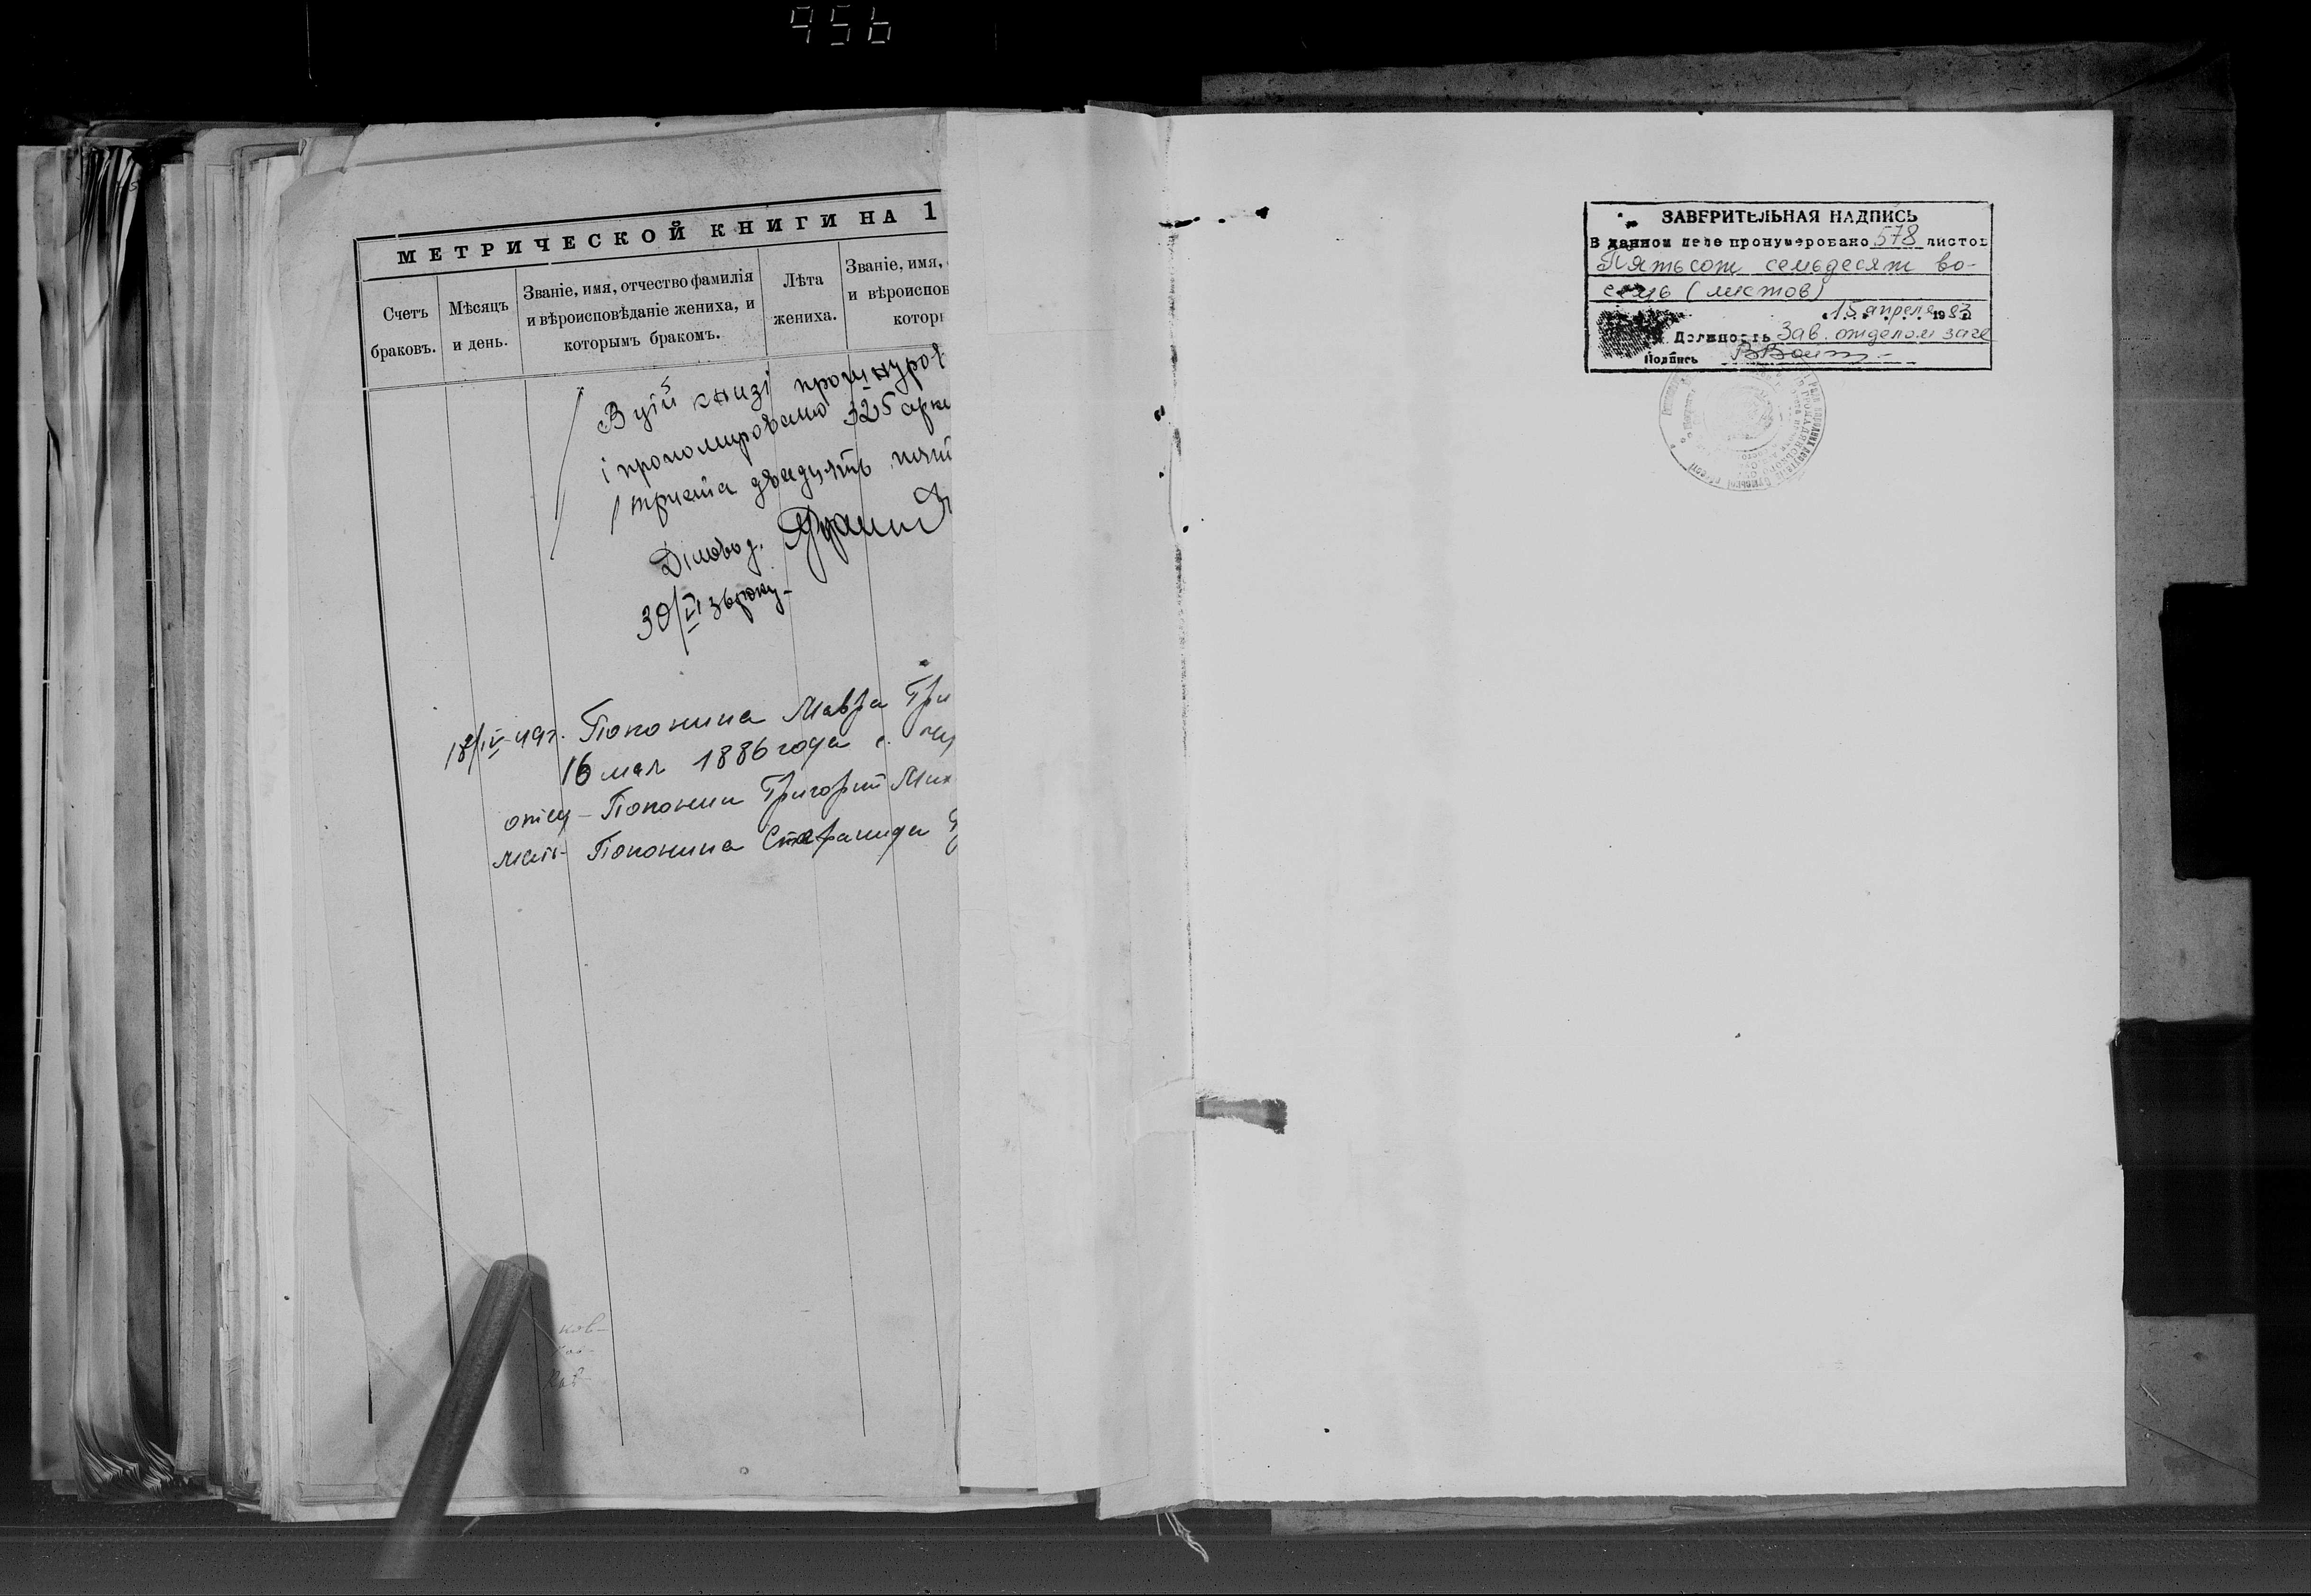 956
МЕТРИЧЕСКОЙ КНИГИ НА 1
Счетъ браковъ.
Мѣсяцъ и день.
Званіе, имя, отчество фамилія
и вѣроисповѣданіе жениха, и
которымъ бракомъ.
Лѣта жениха.
Званіе, имя,
и вѣроиспов
котор
В цій книзі прошнуров
і прономеровано 325 арк
/триста двадцять пят
Діловод.
30/VI 36 року
18/IV-49г. Попонина Мавра Гри
16 мая 1886 года с.
отец - Попонин Григорий Мих
мать - Попонина Стефанида
ЗАВЕРИТЕЛЬНАЯ НАДПИСЬ
В данном деле пронумеровано 578 листов
Пятьсот семьдесят во-
семь (листов)
15 апреля 1983
Должность Зав. отделом загс
Подпись